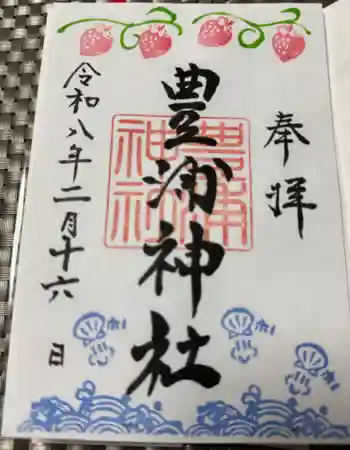 奉拝
豊浦神社
豊浦
神社
令和八年二月十六日
ホ
ホ